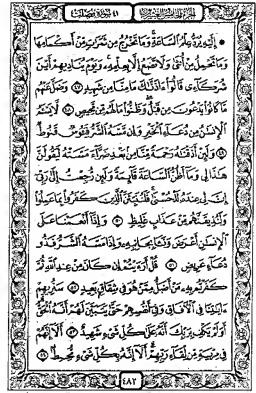 الجزء الخامس والعشرون ٤١ سورة فصلت
۞ إِلَيْهِ يُرَدُّ عِلْمُ ٱلسَّاعَةِ وَمَا تَخْرُجُ مِن ثَمَرَٰتٍ مِّنْ أَكْمَامِهَا
وَمَا تَحْمِلُ مِنْ أُنثَىٰ وَلَا تَضَعُ إِلَّا بِعِلْمِهِۦ وَيَوْمَ يُنَادِيهِمْ أَيْنَ
شُرَكَآءِى قَالُوٓا۟ ءَاذَنَّٰكَ مَا مِنَّا مِن شَهِيدٍ ٤٧ وَضَلَّ عَنْهُم
مَّا كَانُوا۟ يَدْعُونَ مِن قَبْلُ وَظَنُّوا۟ مَا لَهُم مِّن مَّحِيصٍ ٤٨ لَّا يَسْـَٔمُ
ٱلْإِنسَٰنُ مِن دُعَآءِ ٱلْخَيْرِ وَإِن مَّسَّهُ ٱلشَّرُّ فَيَـُٔوسٌ قَنُوطٌ
٤٩ وَلَئِنْ أَذَقْنَٰهُ رَحْمَةً مِّنَّا مِنۢ بَعْدِ ضَرَّآءَ مَسَّتْهُ لَيَقُولَنَّ
هَٰذَا لِى وَمَآ أَظُنُّ ٱلسَّاعَةَ قَآئِمَةً وَلَئِن رُّجِعْتُ إِلَىٰ رَبِّىٓ
إِنَّ لِى عِندَهُۥ لَلْحُسْنَىٰ فَلَنُنَبِّئَنَّ ٱلَّذِينَ كَفَرُوا۟ بِمَا عَمِلُوا۟
وَلَنُذِيقَنَّهُم مِّنْ عَذَابٍ غَلِيظٍ ٥٠ وَإِذَآ أَنْعَمْنَا عَلَى
ٱلْإِنسَٰنِ أَعْرَضَ وَنَـَٔا بِجَانِبِهِۦ وَإِذَا مَسَّهُ ٱلشَّرُّ فَذُو
دُعَآءٍ عَرِيضٍ ٥١ قُلْ أَرَءَيْتُمْ إِن كَانَ مِنْ عِندِ ٱللَّهِ ثُمَّ
كَفَرْتُم بِهِۦ مَنْ أَضَلُّ مِمَّنْ هُوَ فِى شِقَاقٍۭ بَعِيدٍ ٥٢ سَنُرِيهِمْ
ءَايَٰتِنَا فِى ٱلْـَٔافَاقِ وَفِىٓ أَنفُسِهِمْ حَتَّىٰ يَتَبَيَّنَ لَهُمْ أَنَّهُ ٱلْحَقُّ
أَوَلَمْ يَكْفِ بِرَبِّكَ أَنَّهُۥ عَلَىٰ كُلِّ شَىْءٍ شَهِيدٌ ٥٣ أَلَآ إِنَّهُمْ
فِى مِرْيَةٍ مِّن لِّقَآءِ رَبِّهِمْ أَلَآ إِنَّهُۥ بِكُلِّ شَىْءٍ مُّحِيطٌۢ ٥٤
٤٨٢